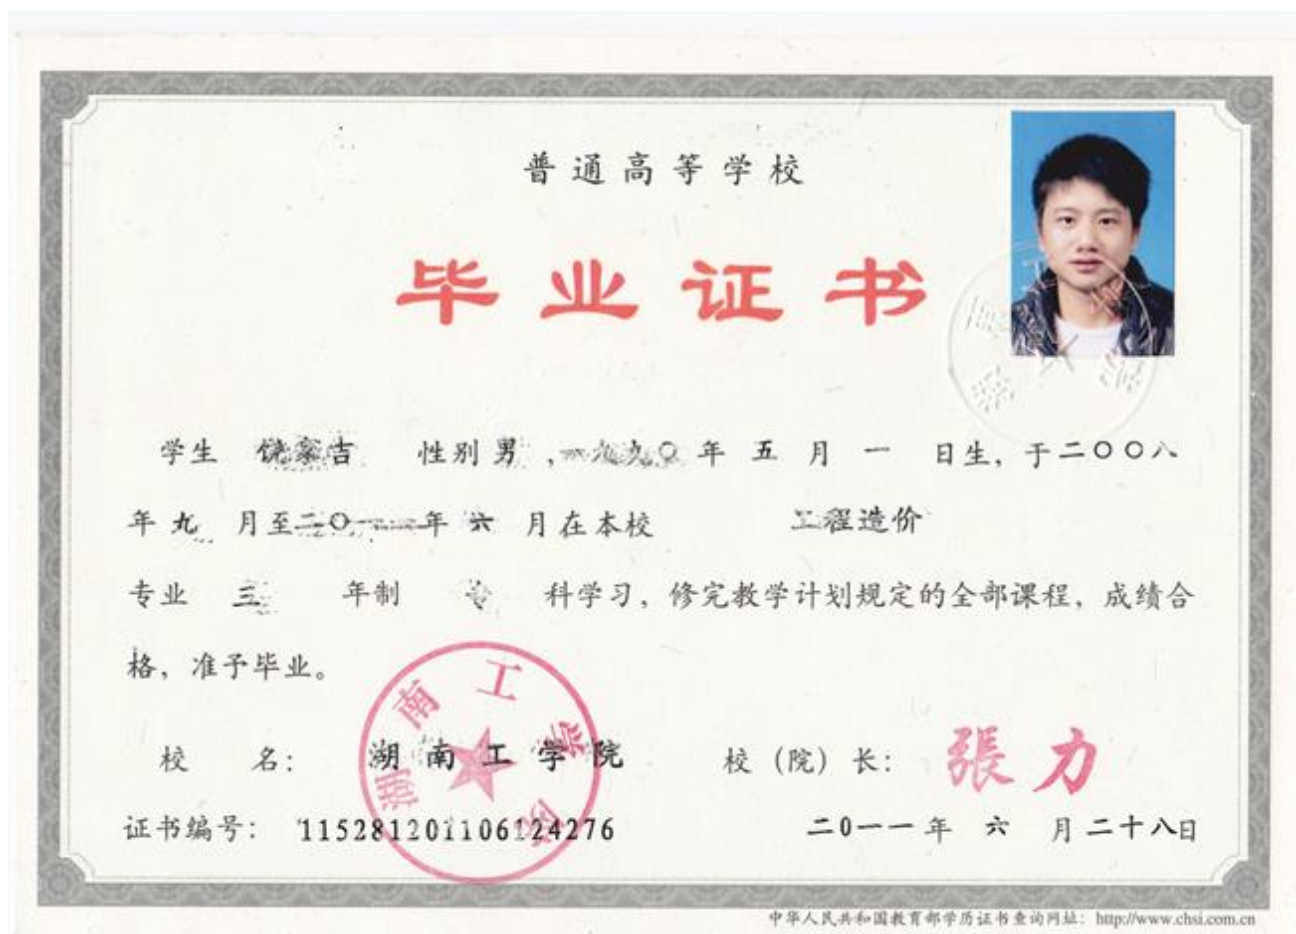 普通高等学校
毕业证书
学生 饶家吉 性别 男 ,一九九〇年 五 月 一 日生, 于二〇〇八
年 九 月至二〇一一年 六 月在本校 工程造价
专业 三 年制 专 科学习, 修完教学计划规定的全部课程, 成绩合
格, 准予毕业。
湖南工学院
校 名: 湖南工学院 校(院)长: 張力
证书编号: 115281201106124276 二0一一年 六 月二十八日
中华人民共和国教育部学历证书查询网址: http://www.chsi.com.cn